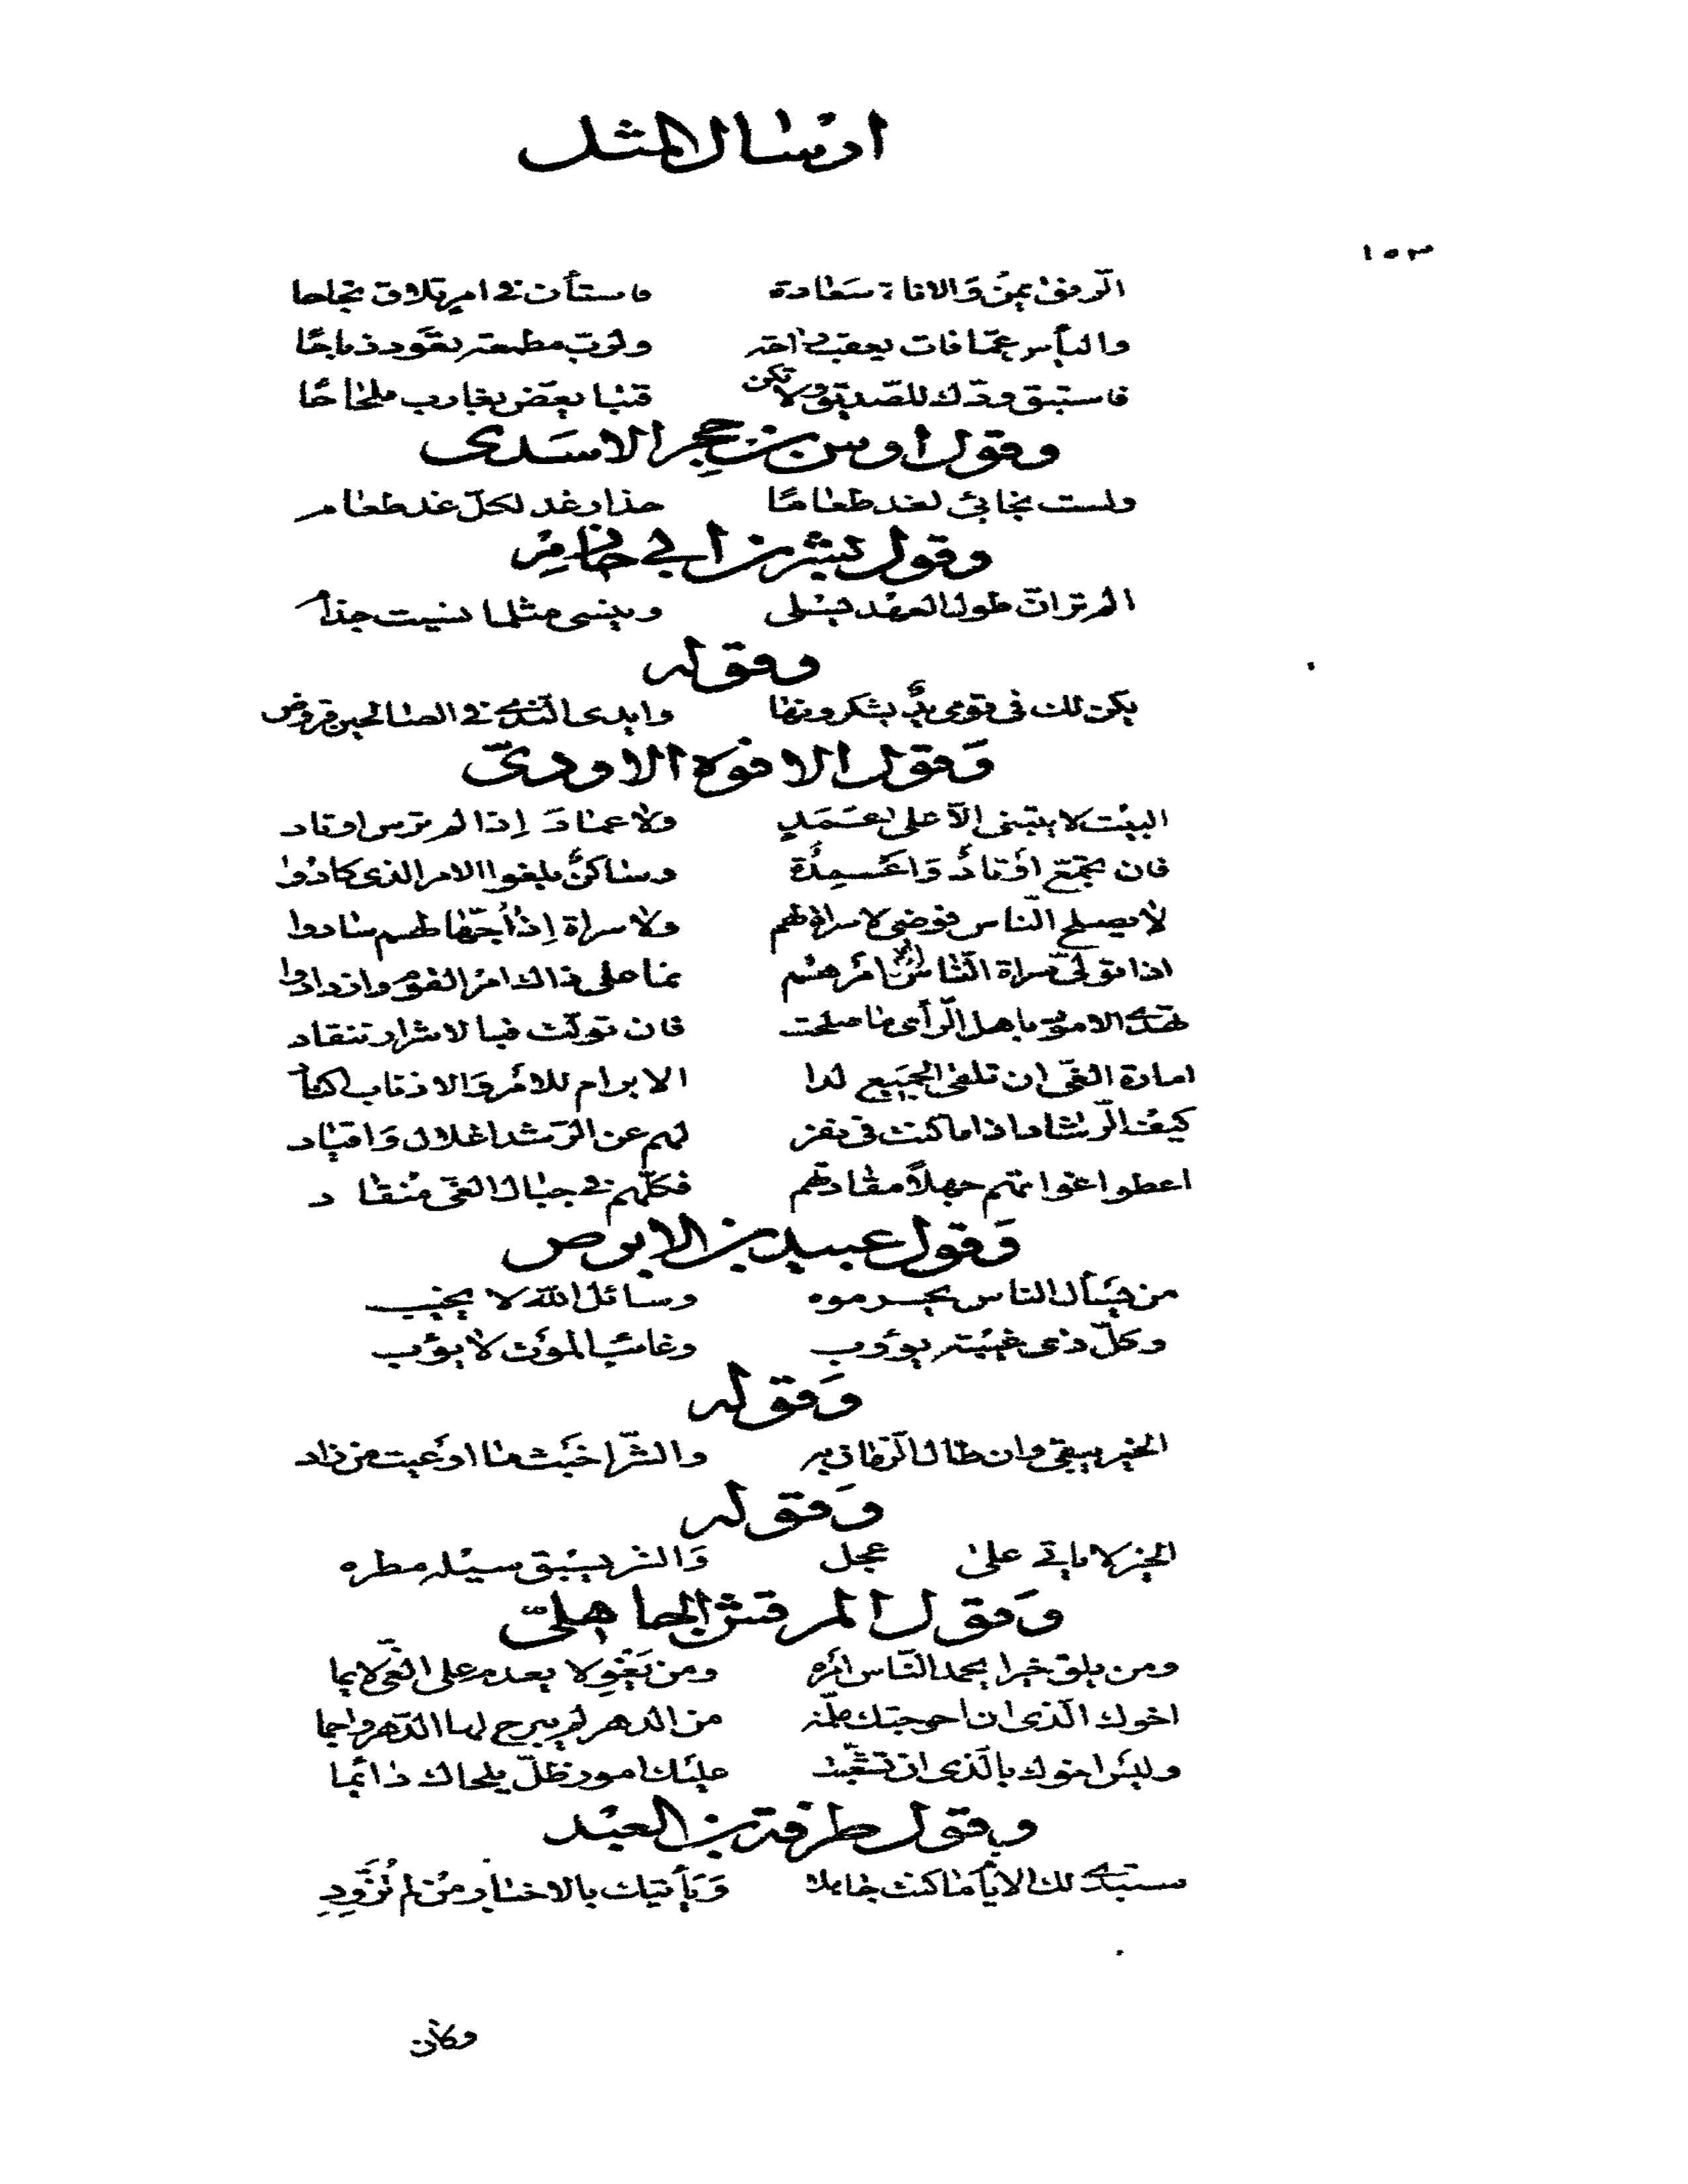 ارسال المثل
١٥٣
الرفق يمن والاناة سعادة فاستأن في امر تلاق نجاحا
واليأس عمّا فات يعقب راحة ولرب مطعمة تعود ذباحًا
فاستبق ودّك للصديق ولا تكن قتبا يعضّ بغارب ملحاحًا
وقول اوس بن حجر الاسدى
ولست بخابئ لغد طعامًا حذار غد لكلّ غد طعام
وقول بشر بن ابي خازم
الم تر انّ طول العهد يسلى وينسى مثلما نسيت جذام
وقوله
يكن لك فى قومى يدٌ يشكرونها وايدى الندى في الصالحين قروض
وَقول الافوه الاودىّ
البيت لا يبتنى الّا على عَمَدٍ ولا عمادَ إذا لم ترس اوتاد
فان تجمّع اوتادٌ وَاعمدةٌ وساكنٌ بلغوا الامر الذى كادوا
لا يصلح النّاس فوضى لا سراة لهم ولا سراة إذا جهّالهم سادوا
اذا تولّى سراة النّاس امرهم نما على ذاك امر القوم وازدادوا
تهدى الامور باهل الرّأى ما صلحت فان تولّت فبالاشرار تنقاد
امارة الغىّ ان تلفى الجميع لدا الابرام للامر وَالاذناب اكتاد
كيف الرّشاد اذا ما كنت فى نفر لهم عن الرّشد اغلال وَاقياد
اعطوا غواتهم جهلاً مقادتهم فكلّهم في حبال الغىّ منقاد
وَقول عبيد بن الابرص
من يسأل الناس يحرموه وسائل اللّه لا يخيب
وكلّ ذى غيبته يؤوب وغائب الموت لا يؤب
وَقوله
الخير يبقى وان طال الزمان به والشّر اخبث ما اوعيت من زاد
وَقوله
الخير لا ياتي على عجل وَالشر يسبق سيله مطره
وَقول المرقش الجاهلىّ
ومن يلق خيرا يحمد النّاس امره ومن يَغْوِ لا يعدم على الغىّ لايما
اخوك الّذى ان احوجتك ملمّة من الدهر لم يبرح لها الدّهر واجما
وليس اخوك بالّذى ان تشعّبت عليك امور ظلّ يلحاك دائما
وقول طرفة بن العبد
ستبدى لك الايّام ما كنت جاهلا وَيأتيك بالاخبار من لم تُزَوِّدِ
وكان